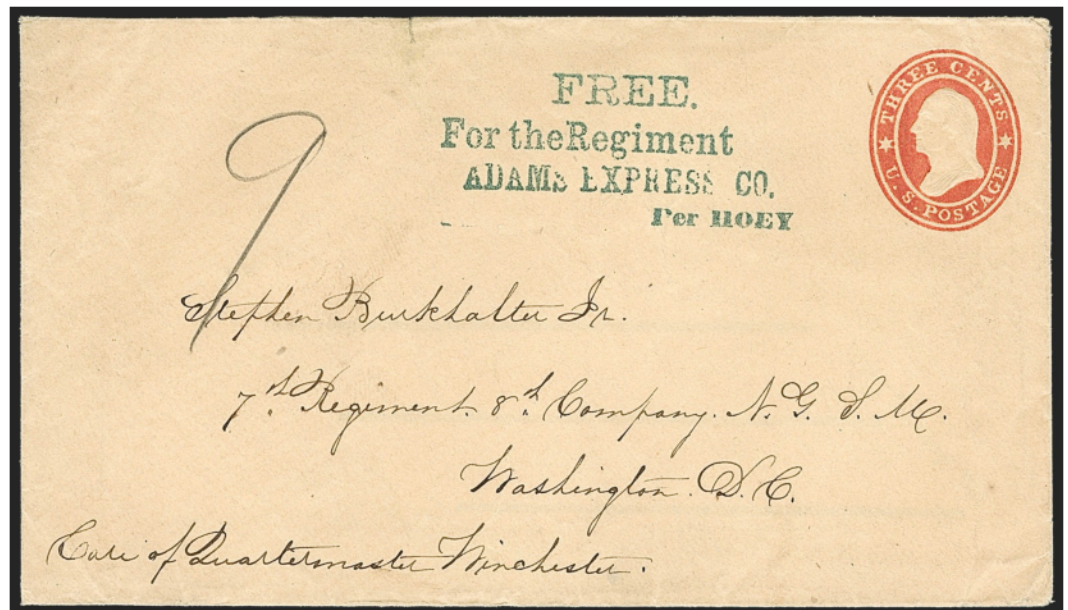 FREE.
For the Regiment
ADAMS EXPRESS CO.
Per HOEY
THREE CENTS
U.S. POSTAGE
9
Stephen Burkhalter Jr.
7th Regiment. 8th Company. N. G. S. M.
Washington. D. C.
Care of Quartermaster Winchester.